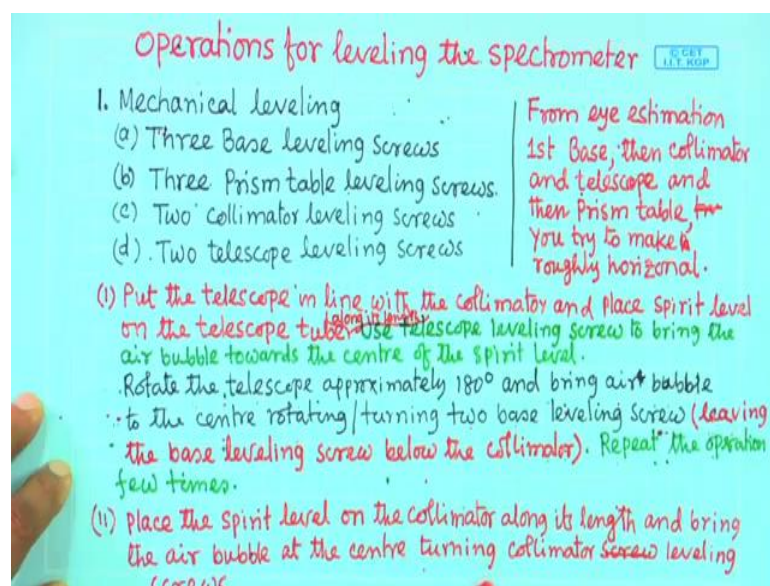 Operations for leveling the spectrometer
© CET
I.I.T. KGP
1. Mechanical leveling
(a) Three Base leveling Screws
(b) Three Prism table leveling screws.
(c) Two collimator leveling screws
(d). Two telescope leveling screws
From eye estimation
1st Base, then collimator
and telescope and
then Prism table,
you try to make
roughly horizonal.
(I) Put the telescope in line with the collimator and place spirit level
(along its length)
on the telescope tube. Use telescope leveling screw to bring the
air bubble towards the centre of the spirit level.
Rotate the telescope approximately 180° and bring air bubble
to the centre rotating/turning two base leveling screw (leaving
the base leveling screw below the collimator). Repeat the operation
few times.
(II) Place the spirit level on the collimator along its length and bring
the air bubble at the centre turning collimator screw leveling